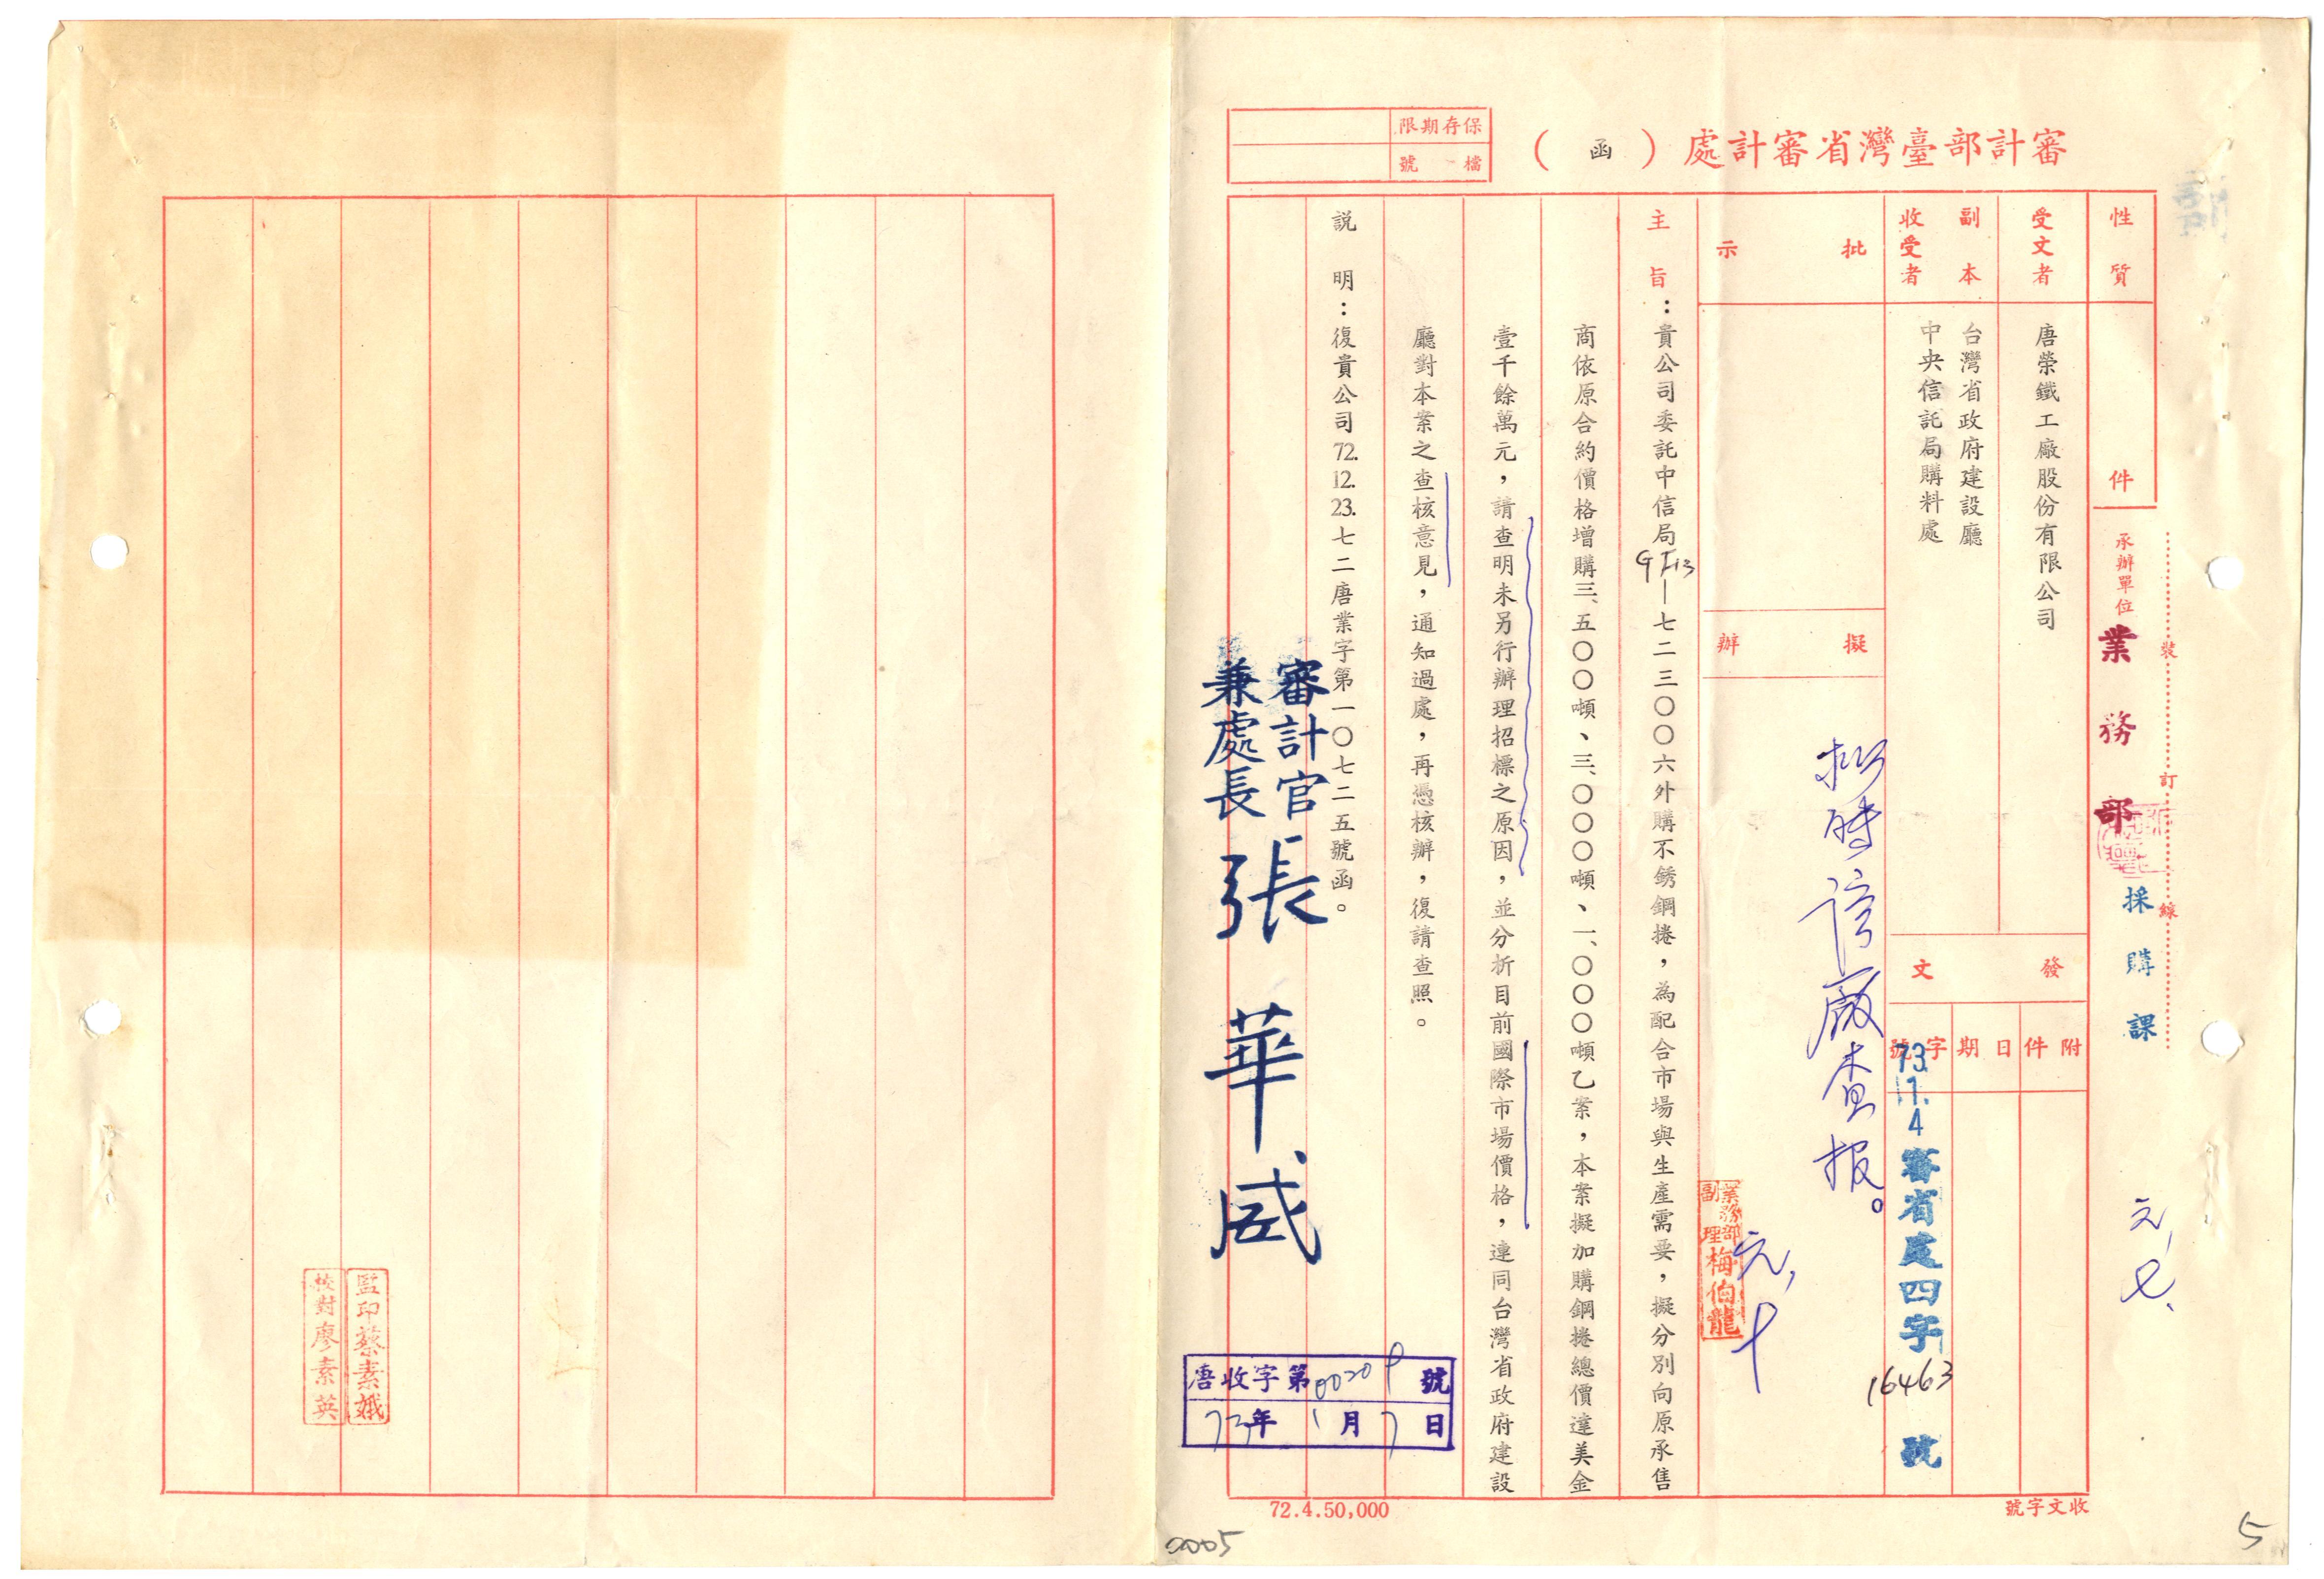 審計部臺灣省審計處（函）
保存期限
檔號
性質
件
承辦單位
業務部
採購課
裝訂線
受文者
唐榮鐵工廠股份有限公司
副本收受者
台灣省政府建設廳
中央信託局購料處
發文
附件
日期
字號
73.1.4
審省處四字16463號
批示
擬辦
查報。
業務部副理梅伯龍
主旨：貴公司委託中信局GF13—七二三〇〇六外購不銹鋼捲，為配合市場與生產需要，擬分別向原承售
商依原合約價格增購三、五〇〇噸、三、〇〇〇噸、一、〇〇〇噸乙案，本案擬加購鋼捲總價達美金
壹千餘萬元，請查明未另行辦理招標之原因，並分析目前國際市場價格，連同台灣省政府建設
廳對本案之查核意見，通知過處，再憑核辦，復請查照。
說明：復貴公司72.12.23.七二唐業字第一〇七二五號函。
審計官
兼處長
張華威
唐收字第00209號
73年1月7日
收文字號
72.4.50,000
監印蔡素娥
校對廖素英
0005
5